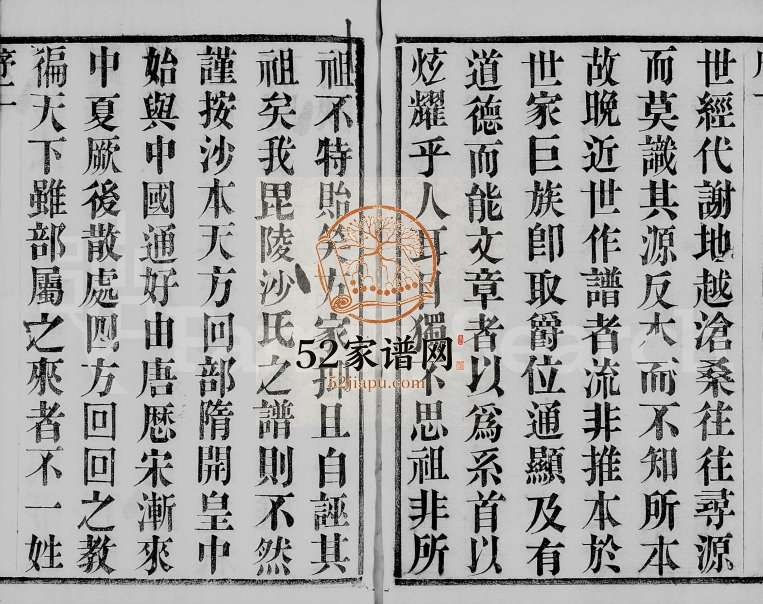 世經代謝地越滄桑往往尋源
而莫識其源反本而不知所本
故晚近世作譜者流非推本於
世家巨族卽取爵位通顯及有
道德而能文章者以爲系首以
炫耀乎人耳目獨不思祖非所
祖不特貽笑方家抑且自誣其
祖矣我毘陵沙氏之譜則不然
謹按沙本天方回部隋開皇中
始與中國通好由唐歷宋漸來
中夏厥後散處四方回回之教
徧天下雖部屬之來者不一姓
序一
52家谱网
52jiapu.com